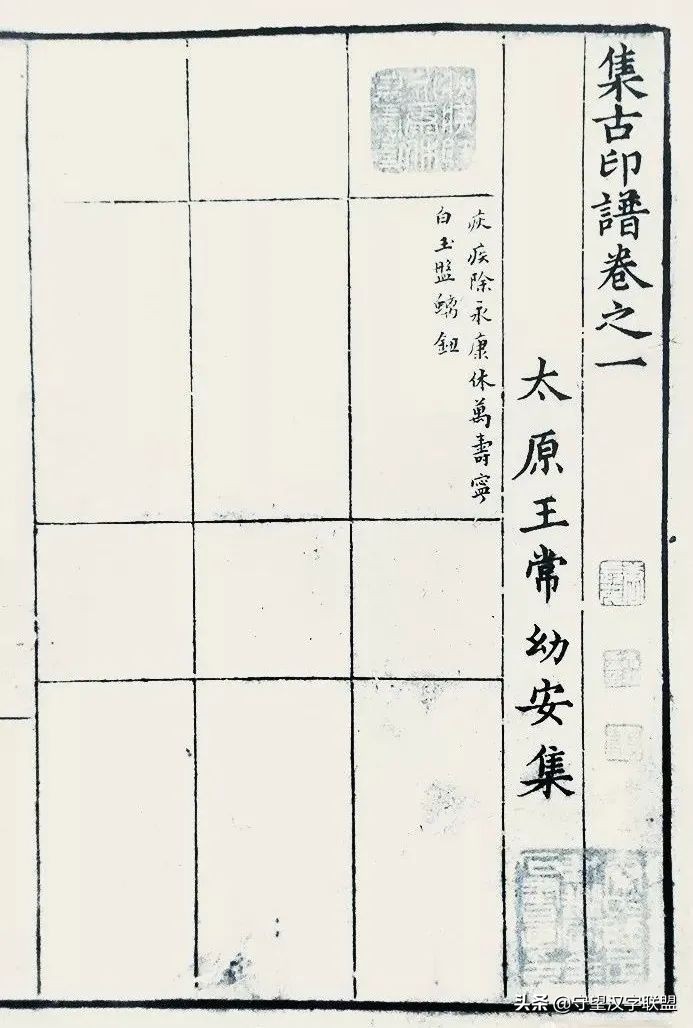 集古印譜卷之一
太原王常幼安集
疢疾除永康休萬壽寧
白玉盤螭鈕
头条 @守望汉字联盟